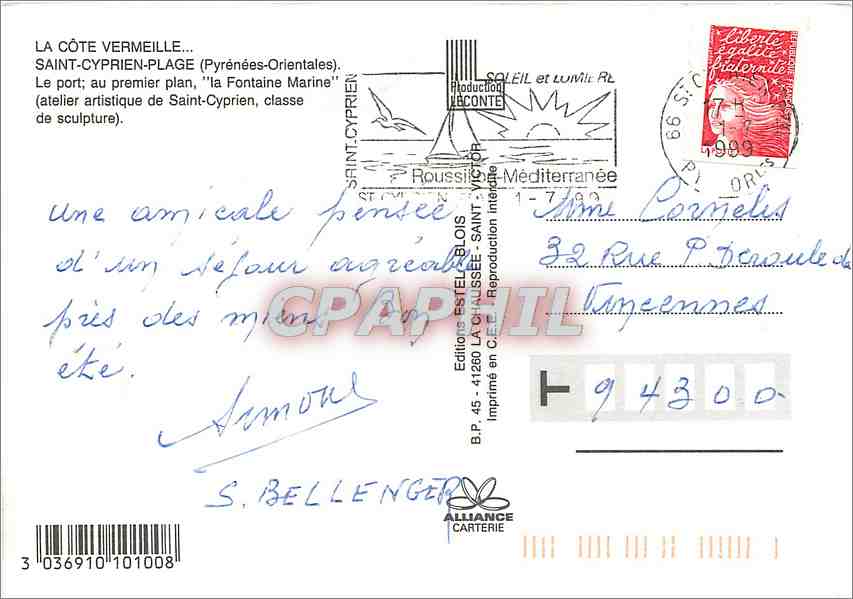 LA CÔTE VERMEILLE...
SAINT-CYPRIEN-PLAGE (Pyrénées-Orientales).
Le port; au premier plan, "la Fontaine Marine"
(atelier artistique de Saint-Cyprien, classe
de sculpture).
Production
LECONTE
SAINT.CYPRIEN
SOLEIL et LUMIERE
Roussillon-Méditerranée
1-7-99
liberté
égalité
fraternité
RÉPUBLIQUE FRANÇAISE
66 ST C
7 H
1-7
1999
PL ORLES
une amicale pensée
d'un séjour agréable
près des miens. Bon
été.
Simone
S. BELLENGER
Editions ESTEL - BLOIS
B.P. 45 - 41260 LA CHAUSSÉE - SAINT VICTOR
Imprimé en C.E.E. - Reproduction interdite
Mme Cornelis
32 Rue P. Deroulede
Vincennes
T 94300
CPAPHIL
ALLIANCE
CARTERIE
3 036910 101008